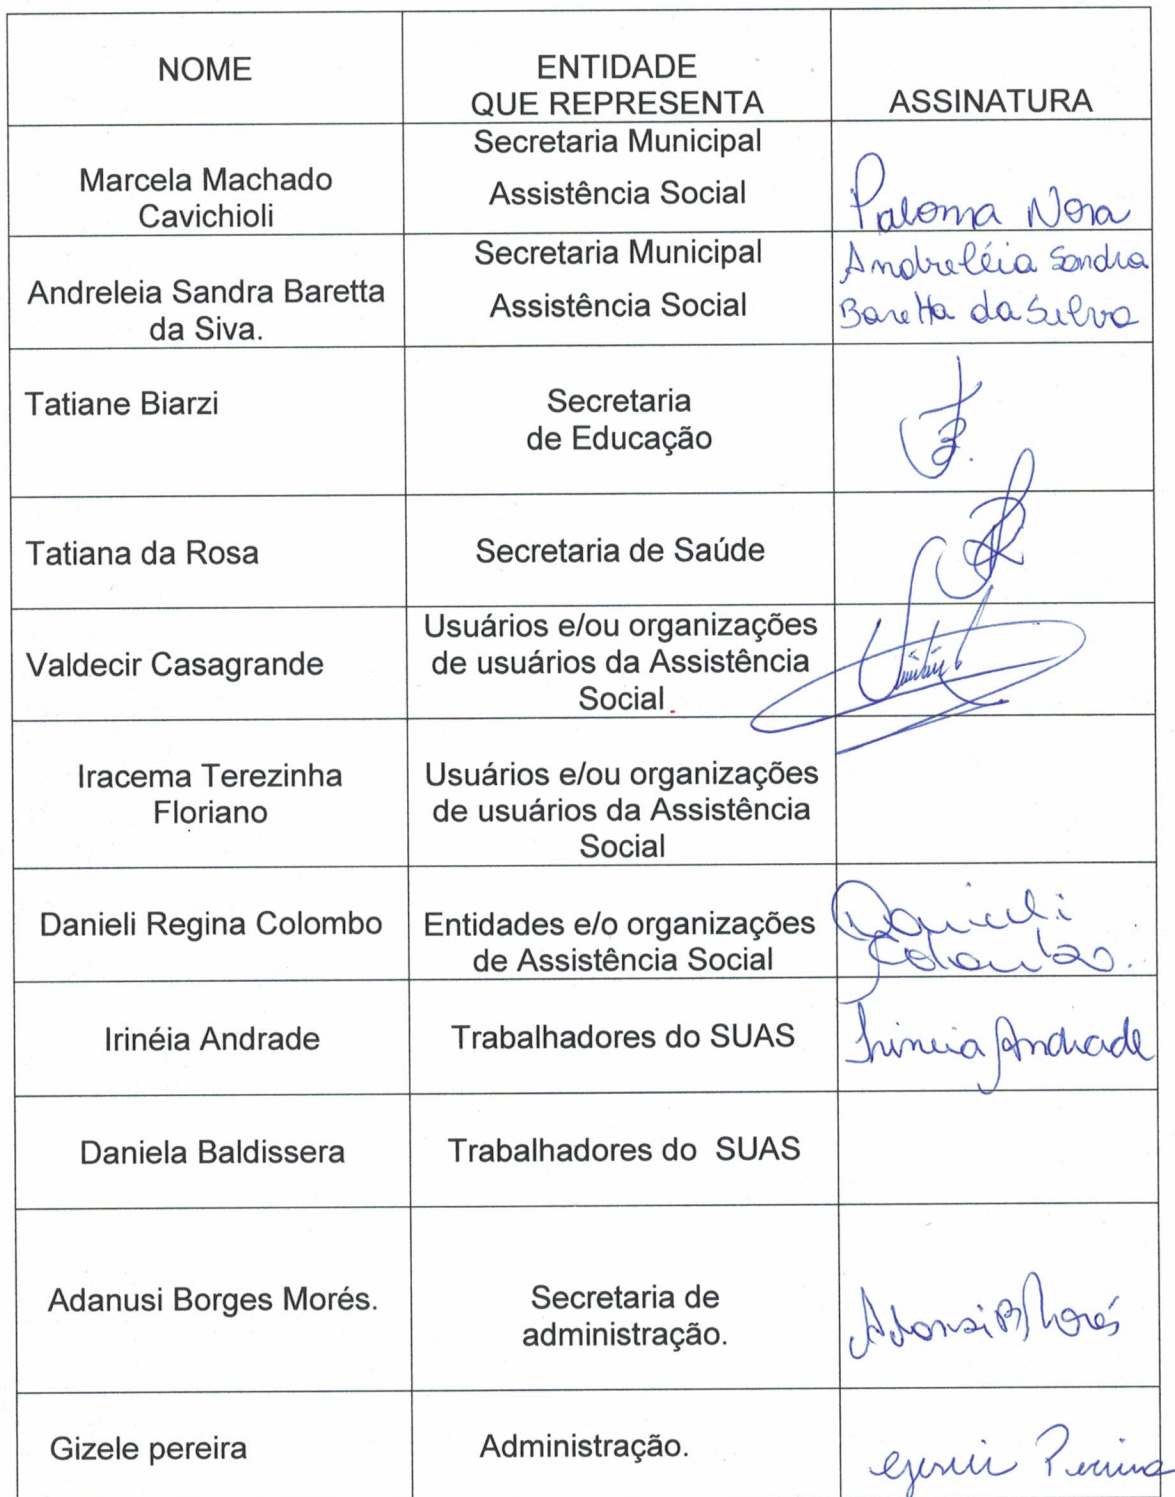 NOME
ENTIDADE
QUE REPRESENTA
ASSINATURA
Marcela Machado
Cavichioli
Secretaria Municipal
Assistência Social
Paloma Nora
Andreleia Sandra Baretta
da Siva.
Secretaria Municipal
Assistência Social
Andreléia Sandra
Baretta da Silva
Tatiane Biarzi
Secretaria
de Educação
Tatiana da Rosa
Secretaria de Saúde
Valdecir Casagrande
Usuários e/ou organizações
de usuários da Assistência
Social
Iracema Terezinha
Floriano
Usuários e/ou organizações
de usuários da Assistência
Social
Danieli Regina Colombo
Entidades e/o organizações
de Assistência Social
Danieli
Colombo.
Irinéia Andrade
Trabalhadores do SUAS
Irineia Andrade
Daniela Baldissera
Trabalhadores do  SUAS
Adanusi Borges Morés.
Secretaria de
administração.
Morés
Gizele pereira
Administração.
Pereira